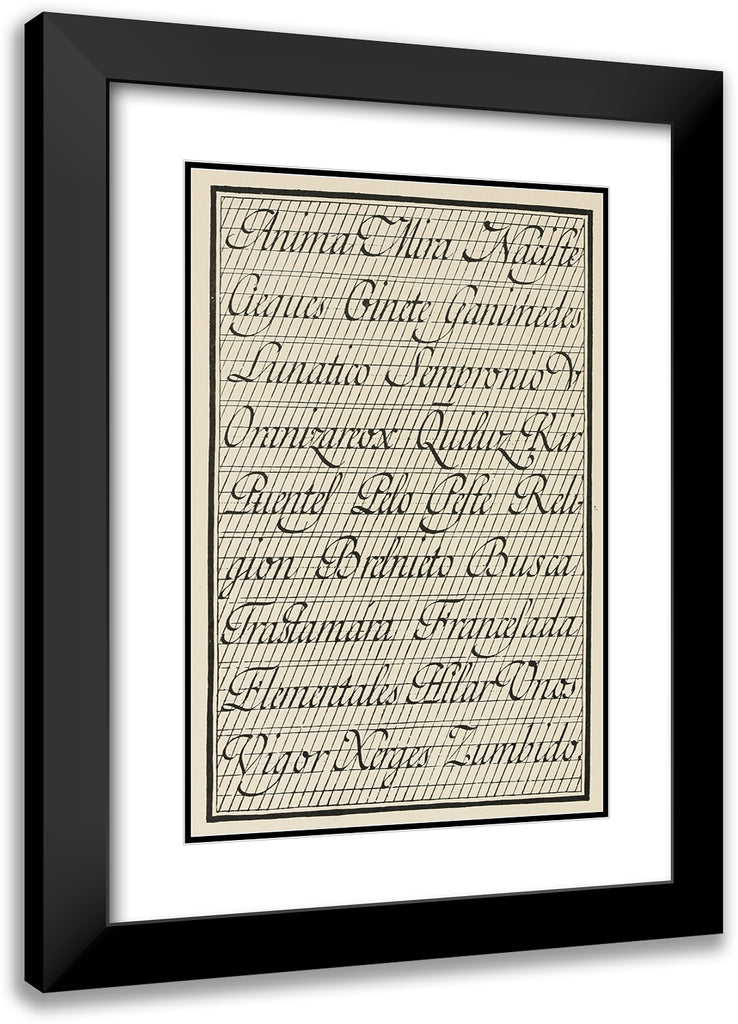 Anima Mira Naciste
Ciegues Ginete Ganimedes
Lunatico Sempronio V
Oranizareox Quiluz Kir
Puentes Pelo Peste Reli-
gion Brebnieto Busca
Trastamára Francesada
Elementales Hilar Vnos
Vigor Xerges Zumbido.